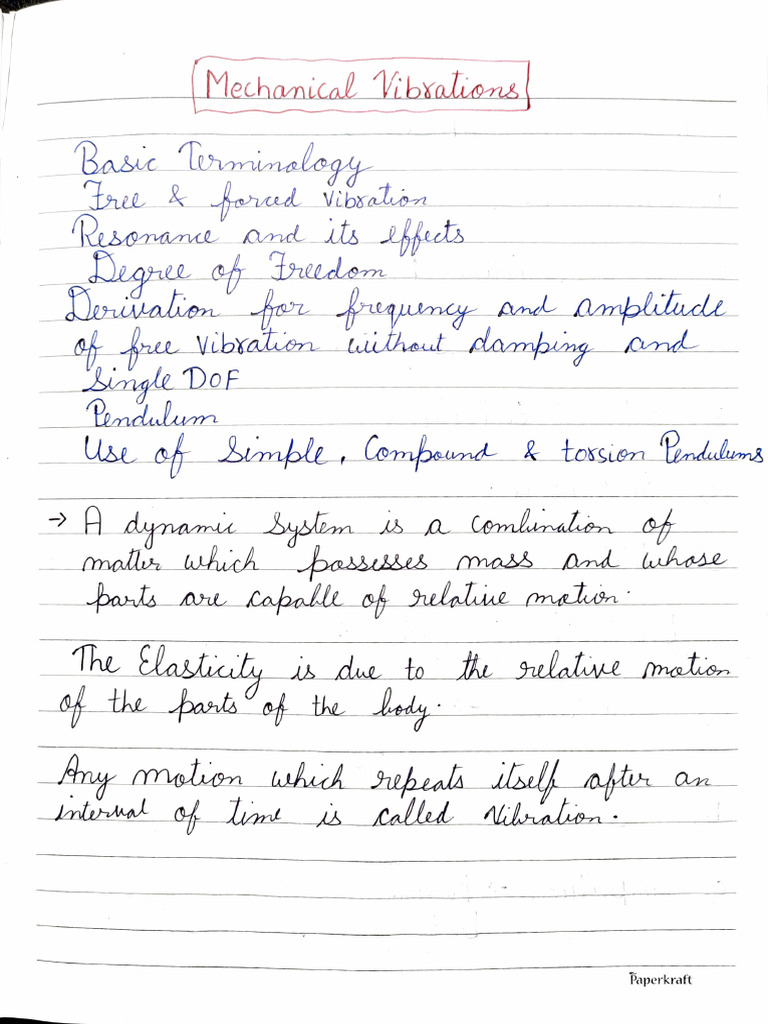 Mechanical Vibrations
Basic Terminology
Free & forced vibration
Resonance and its effects
Degree of Freedom
Derivation for frequency and amplitude
of free vibration without damping and
Single DOF
Pendulum
Use of Simple, Compound & torsion Pendulums
→ A dynamic System is a combination of
matter which possesses mass and whose
parts are capable of relative motion.
The Elasticity is due to the relative motion
of the parts of the body.
Any motion which repeats itself after an
interval of time is called Vibration.
Paperkraft